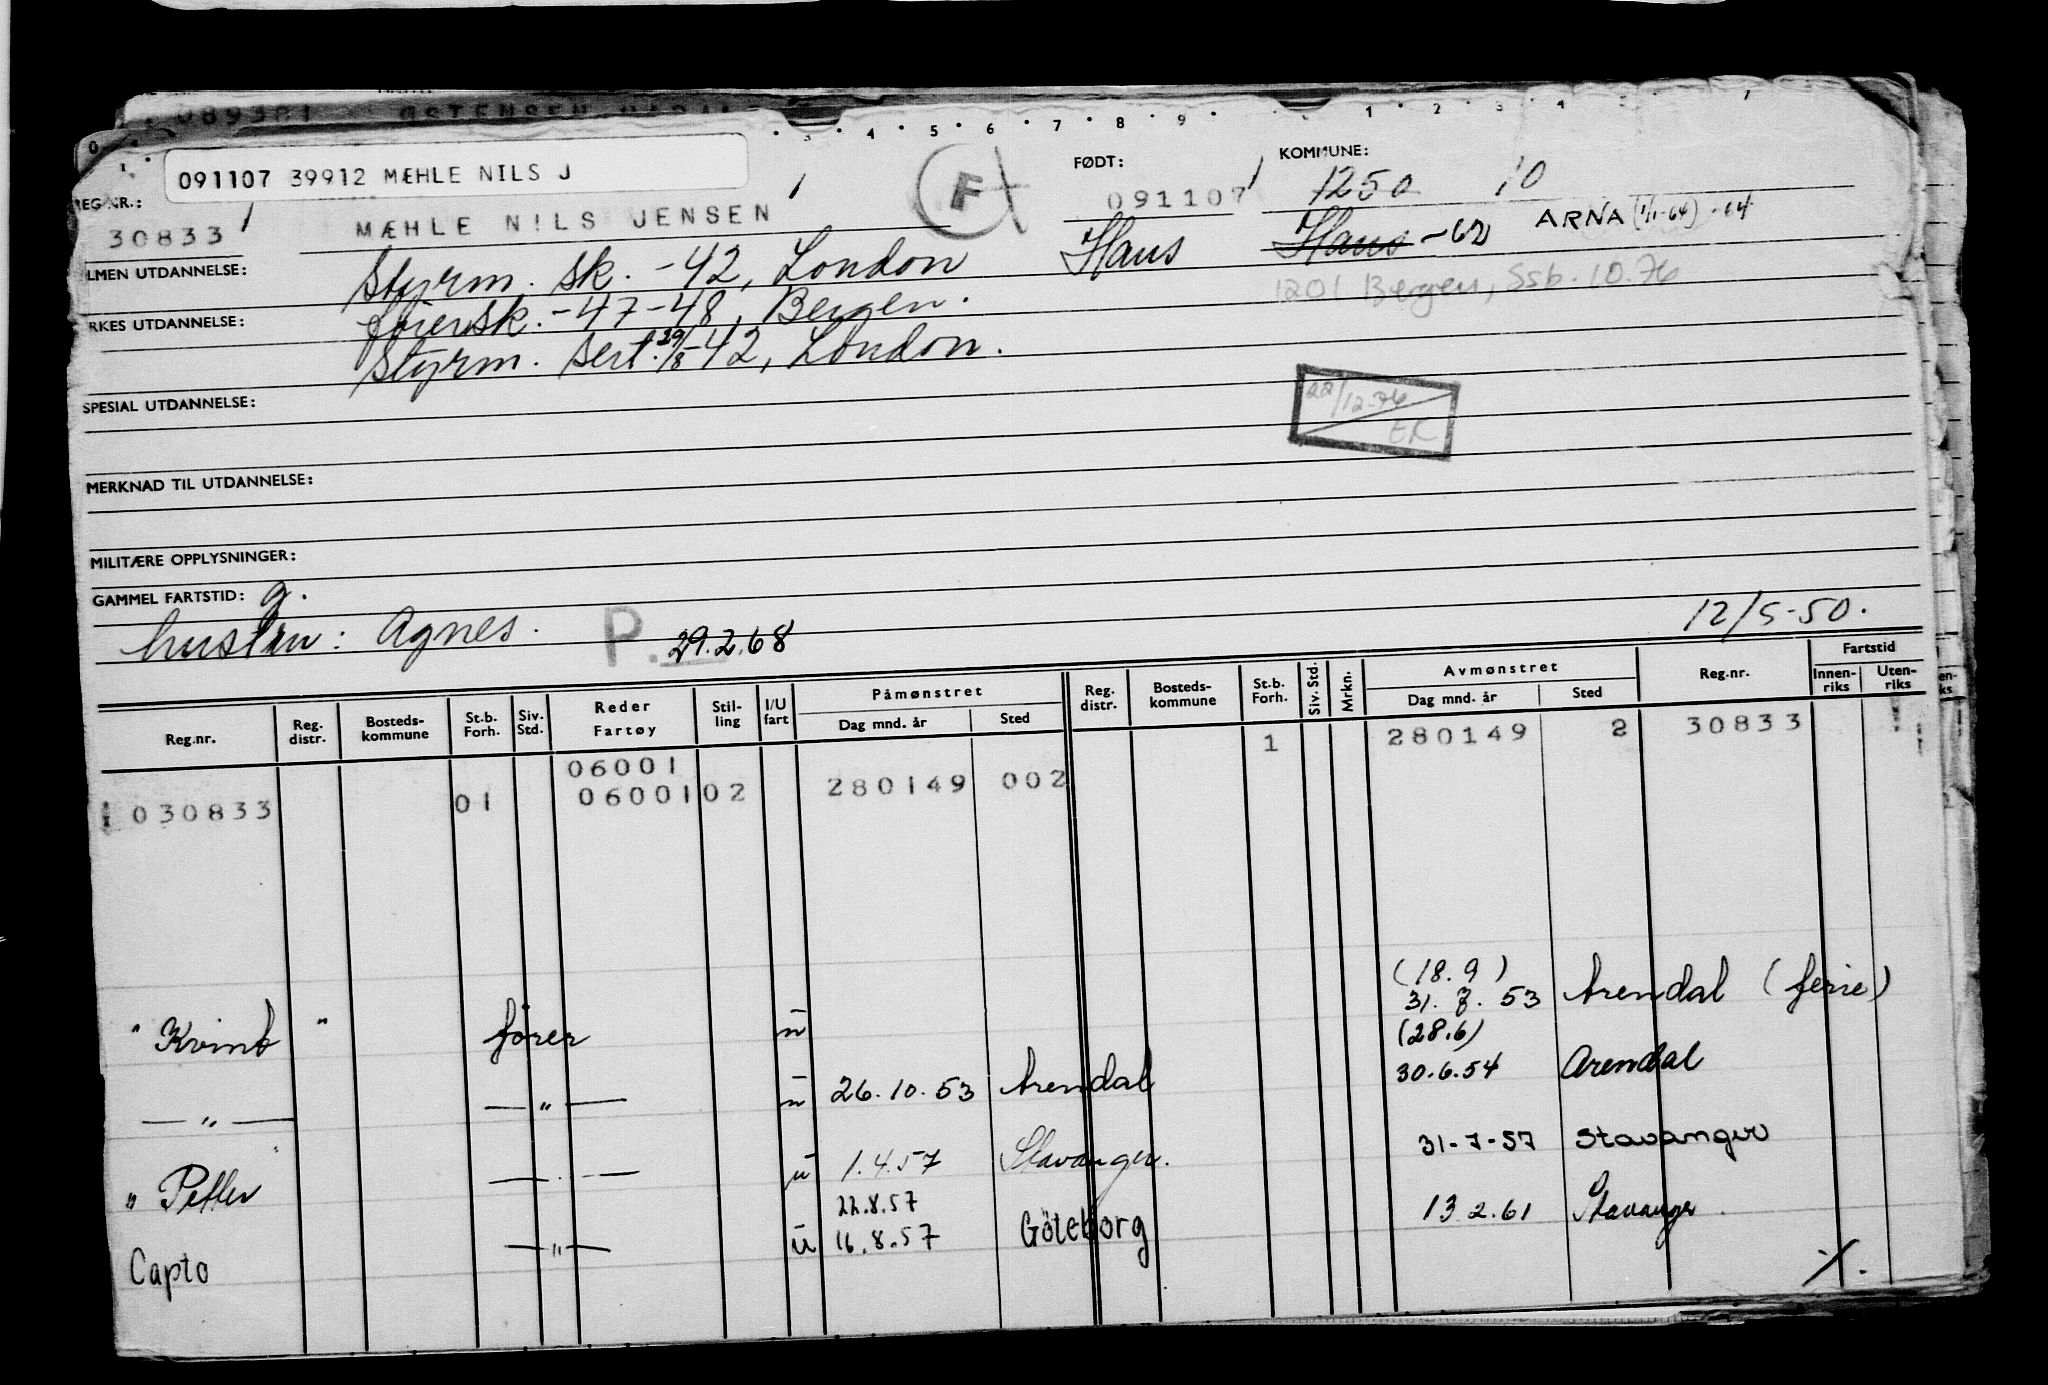 091107 39912 MÆHLE NILS J
REG. NR.:
30833
MÆHLE NILS JENSEN
F
FØDT:
091107
Haus
KOMMUNE:
1250 10
Haus -62 ARNA (1/1-64) -64
1201 Bergen, Ssb. 10.76
LMEN UTDANNELSE: Styrm. sk. -42, London
RKES UTDANNELSE: førersk. -47-48, Bergen.
Styrm. sert. 29/8-42, London.
SPESIAL UTDANNELSE:
22/12-76
EK
MERKNAD TIL UTDANNELSE:
MILITÆRE OPPLYSNINGER:
GAMMEL FARTSTID: g.
hustru: Agnes. P. 29.2.68 12/5-50.
Reg.nr. Reg. distr. Bosteds-kommune St.b. Forh. Siv. Std. Reder Fartøy Stil-ling I/U fart Påmønstret Dag mnd. år Sted Reg. distr. Bosteds-kommune St.b. Forh. Siv. Std. Mrkn. Avmønstret Dag mnd. år Sted Reg.nr. Fartstid Innen-riks Uten-riks
06001 1 280149 2 30833
030833 01 06001 02 280149 002
(18.9)
"Kvint" fører u 31.8.53 Arendal (ferie)
(28.6)
— " — — " — u 26.10.53 Arendal 30.6.54 Arendal
"Petter — " — u 1.4.57 Stavanger. 31-7-57 Stavanger
22.8.57
Capto — " — u 16.8.57 Göteborg 13.2.61 Stavanger